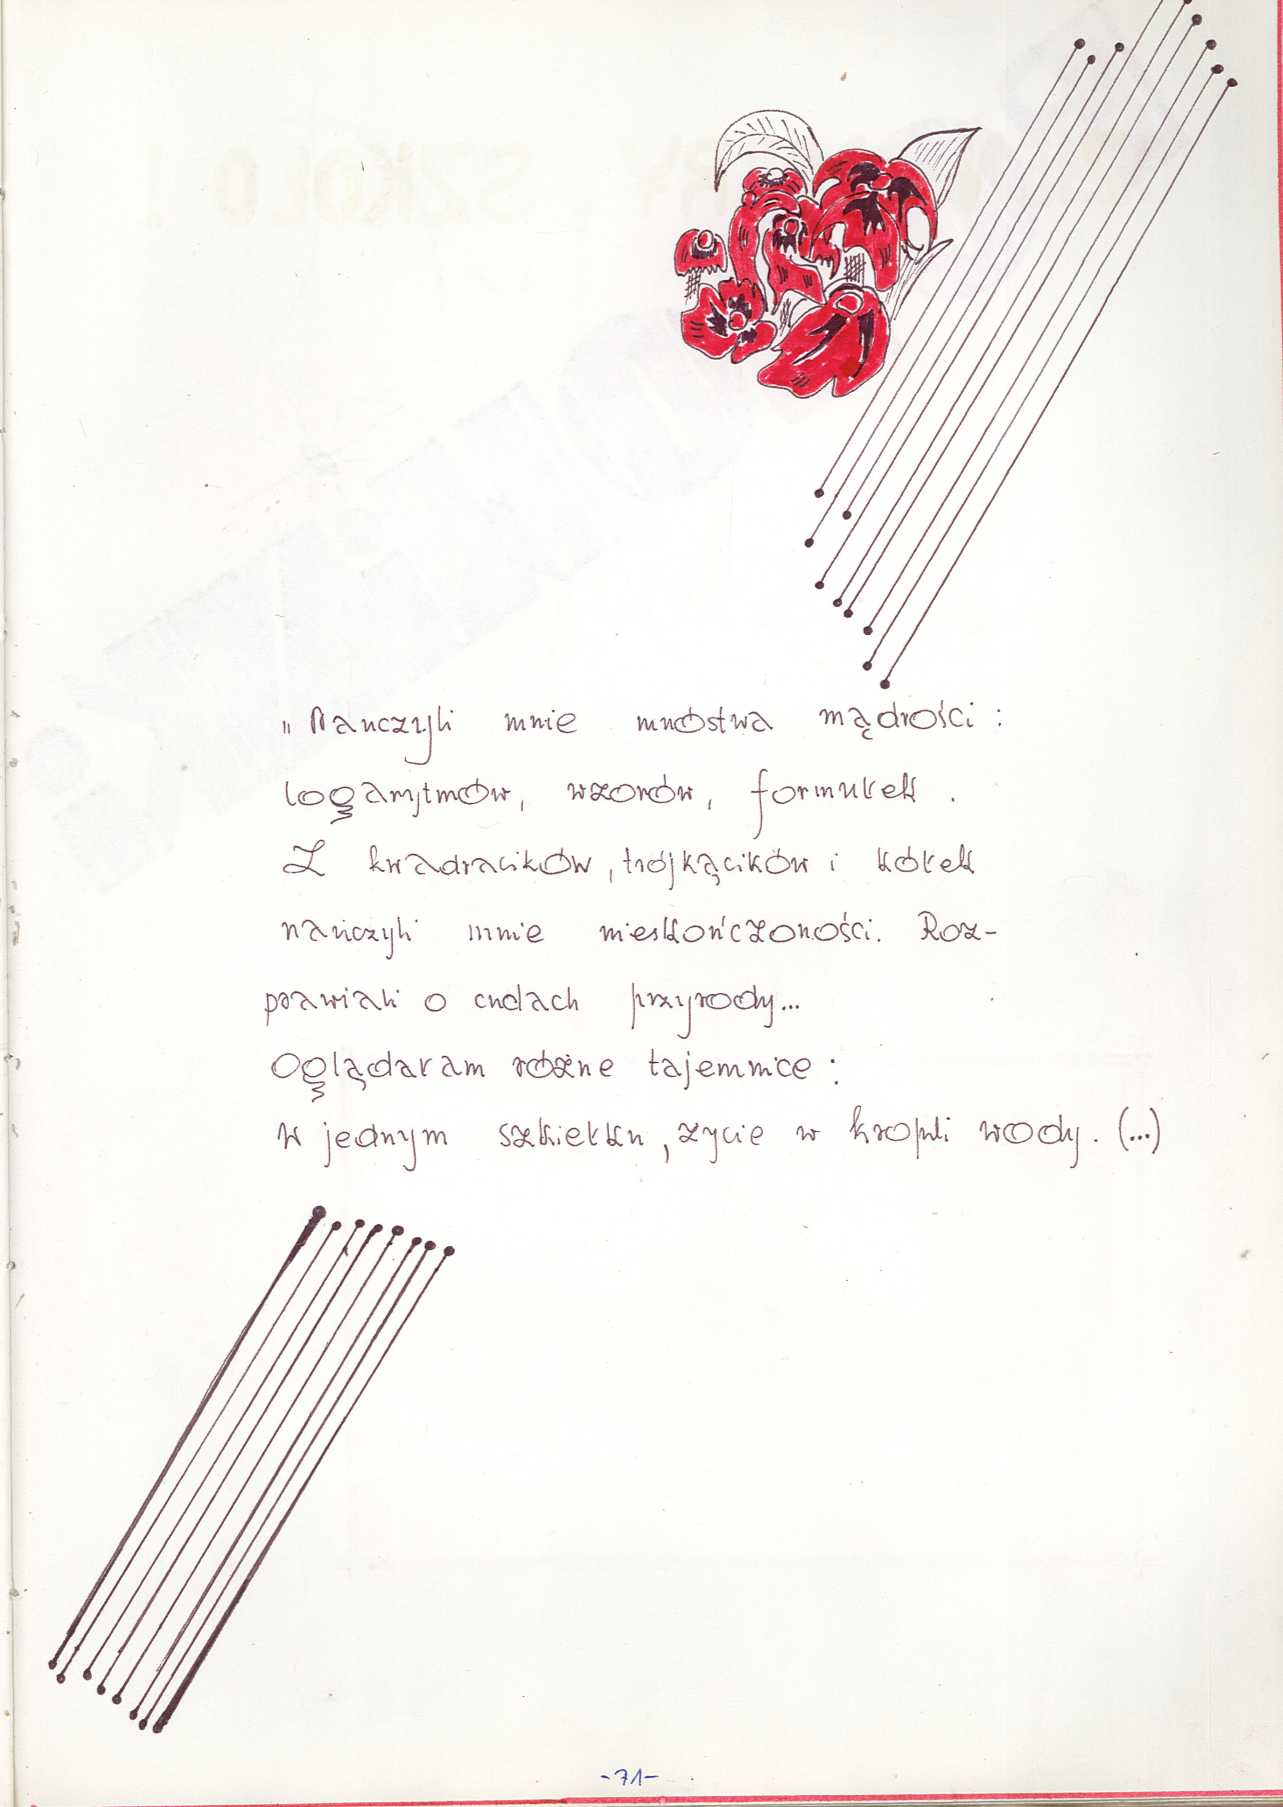 „Nauczyli mnie mnóstwa mądrości:
logarytmów, wzorów, formułek.
Z kwadracików, trójkącików i kółek
nauczyli mnie nieskończoności. Roz-
prawiali o cudach przyrody...
Oglądałam różne tajemnice:
W jednym szkiełku, życie w kropli wody. (...)
-71-